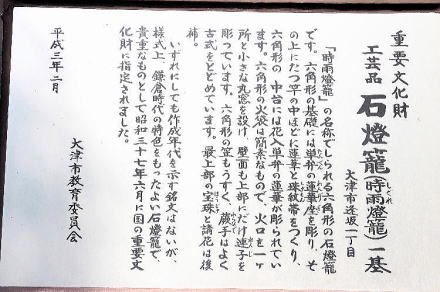 重要文化財
工芸品 石燈籠(時雨燈籠)一基
しぐれ
大津市逢坂一丁目
「時雨燈籠」の名称でしられる六角形の石燈籠
です。六角形の基礎には単弁の蓮華座を彫り、そ
の上にたつ竿の中ほどに蓮華と珠紋帯をつくり、
六角形の中台には花入単弁の蓮華が彫られてい
ます。六角形の火袋は簡素なもので、火口を一ヶ
所と小さな丸窓を設け、壁面も上部にだけ連子を
彫っています。六角形の笠もうすく、蕨手はよく
古式をとどめています。最上部の宝珠と請花は後
補。
いずれにしても作成年代を示す銘文はないが、
様式上、鎌倉時代の特色をもったよい石燈籠で、
貴重なものとして昭和三十七年六月に国の重要文
化財に指定されました。
大津市教育委員会
平成三年二月